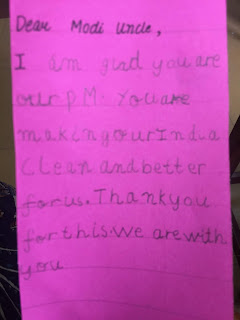 Dear Modi Uncle,
I am glad you are
our P.M. You are
making our India
clean and better
for us. Thank you
for this. We are with
you